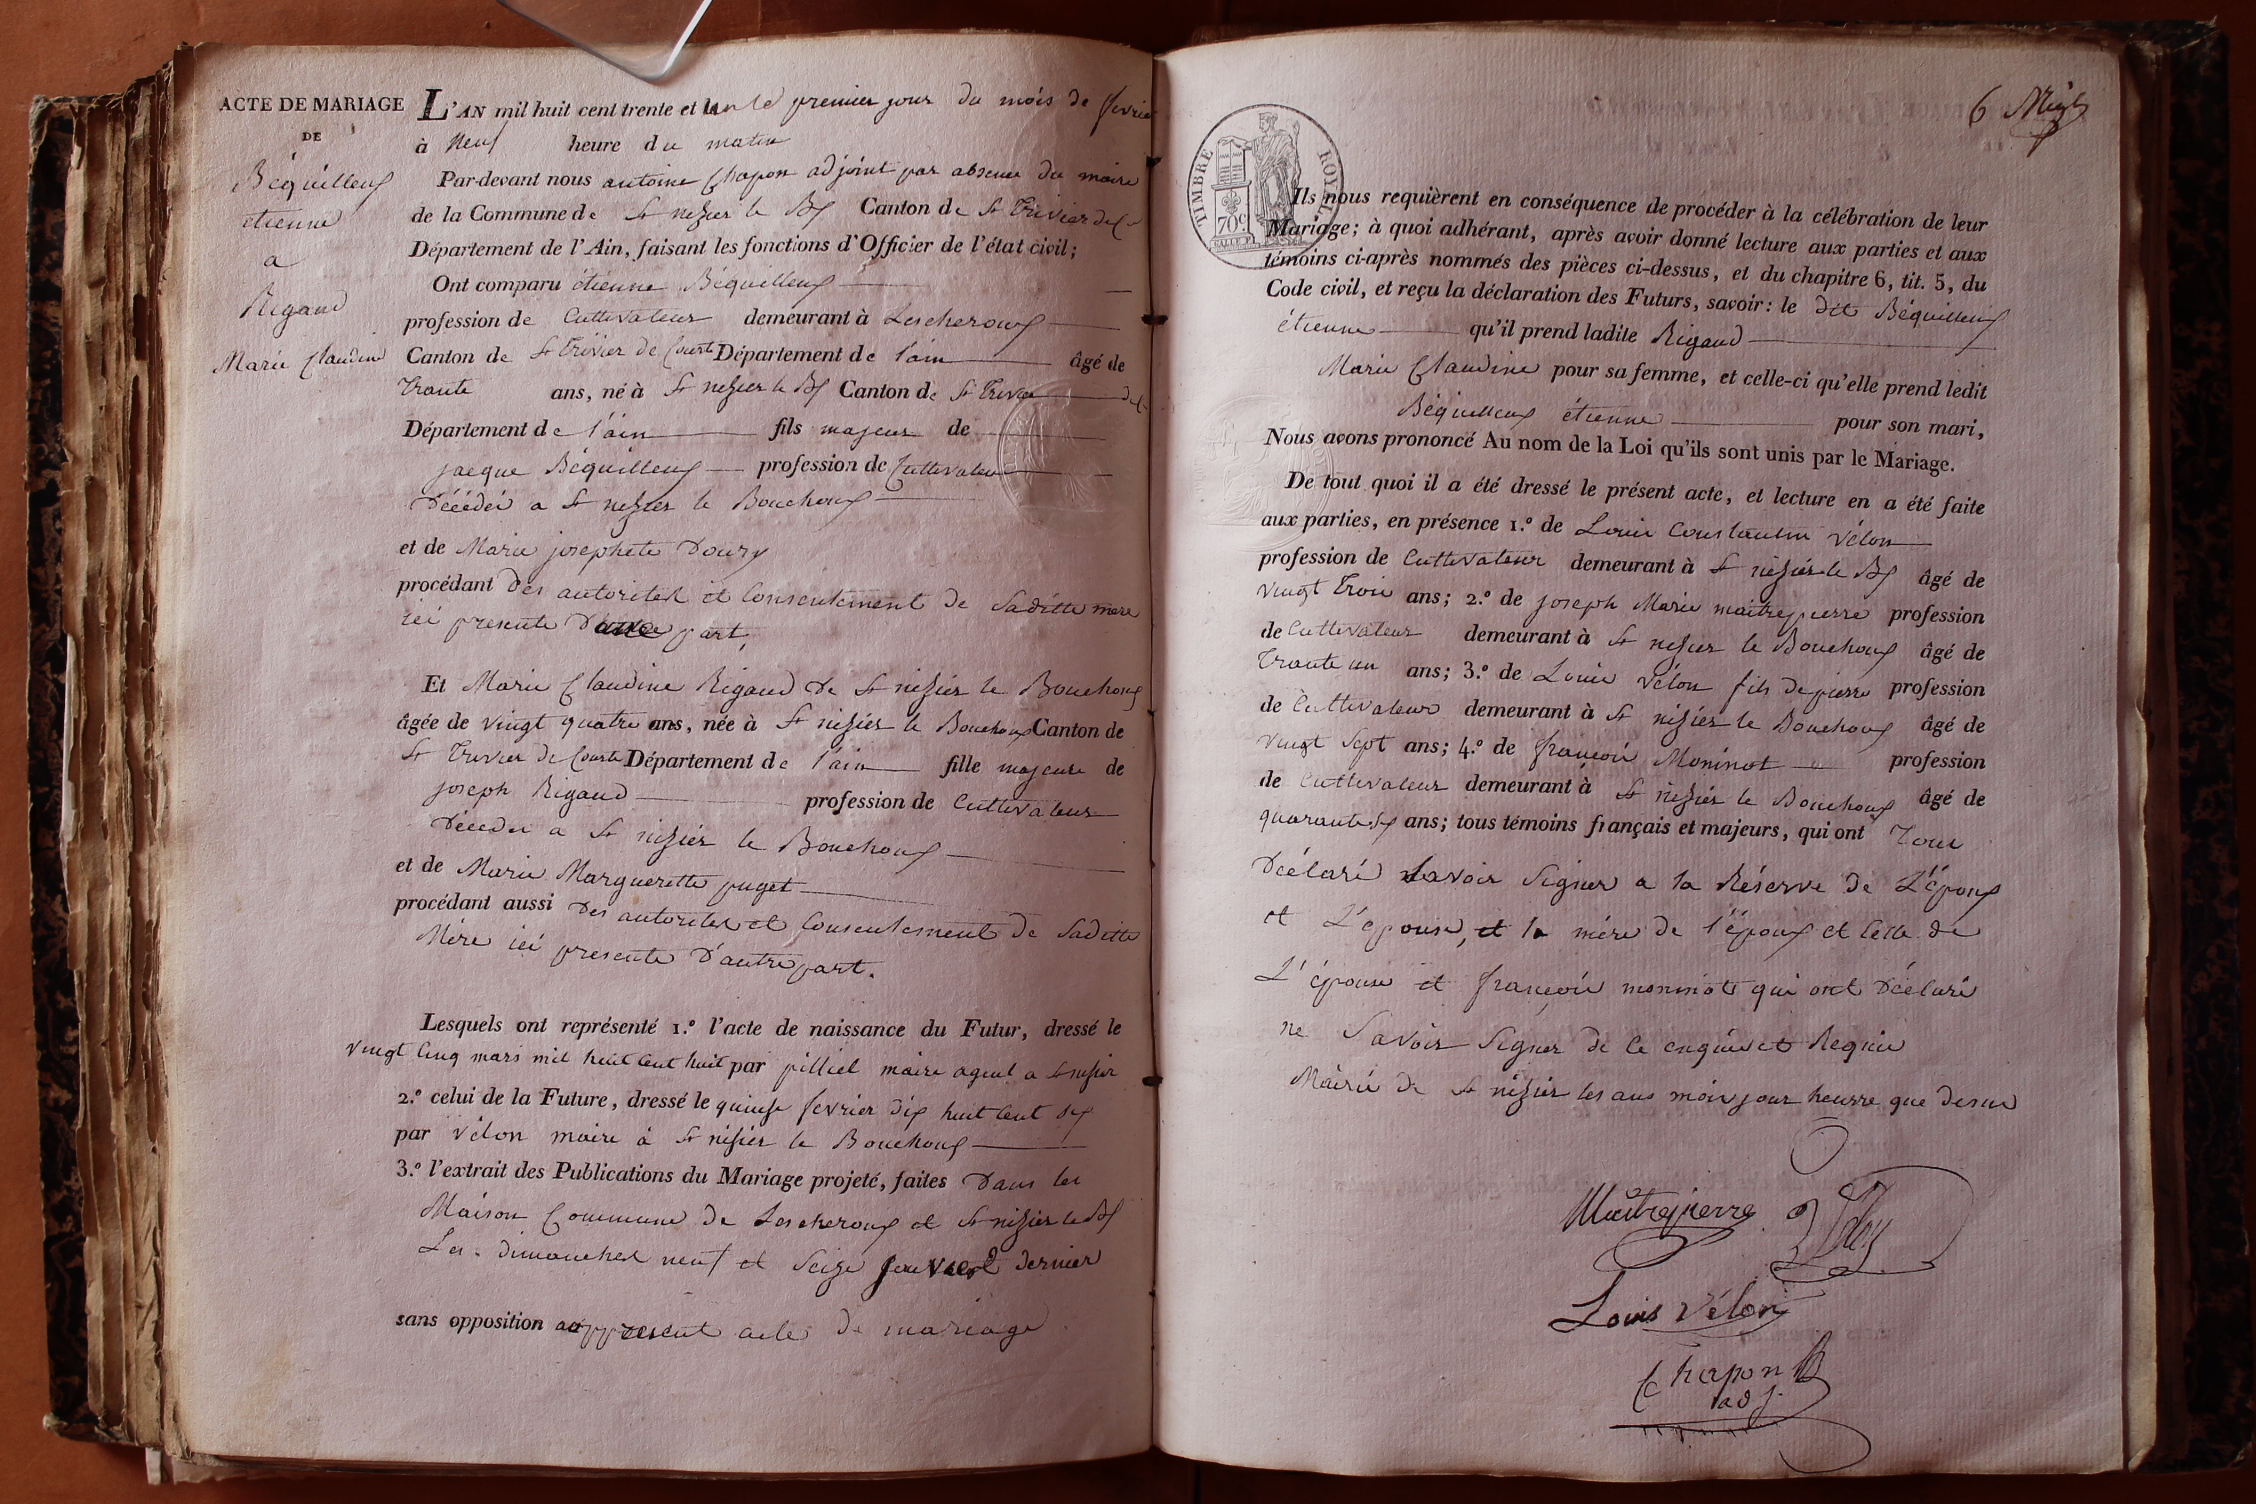 ACTE DE MARIAGE
DE
Béquilleux
étienne
a
Rigaud
Marie Claudine
L'AN mil huit cent trente et un le premier jour du mois de fevrier
à neuf heure du matin
Par-devant nous antoine Chapon adjoint par absence du maire
de la Commune de St nizier le Bx Canton de St Trivier de C
Département de l'Ain, faisant les fonctions d'Officier de l'état civil;
Ont comparu étienne Béquilleux
profession de Cultivateur demeurant à Lescheroux
Canton de St Trivier de Courte Département de l'ain âgé de
trante ans, né à St nizier le Bx Canton de St Trivier de C
Département de l'ain fils majeur de
jacque Béquilleux profession de Cultivateur
Décédéi a St nizier le Bouchoux
et de Marie josephete Doury
procédant des autoritex et Consentement de Saditte mere
ici presente D'une part,
Et Marie Claudine Rigaud de St nizier le Bouchoux
âgée de vingt quatre ans, née à St nizier le Bouchoux Canton de
St Trivier de Courte Département de l'ain fille majeure de
joseph Rigaud profession de Cultivateur
Décedei a St nizier le Bouchoux
et de Marie Marguerette puget
procédant aussi des autoritex et Consentement de Saditte
Mère ici presente D'autre part.
Lesquels ont représenté 1.º l'acte de naissance du Futur, dressé le
vingt Cinq mars mil huit Cent huit par pilliel maire agent a St nisier
2.º celui de la Future, dressé le quinse fevrier dix huit Cent six
par vélon maire à St nisier le Bouchoux
3.º l'extrait des Publications du Mariage projeté, faites Dans les
Maison Commune de Lescheroux et St nizier le Bx
Les dimanchex neuf et Seize janvier dernier
sans opposition au present acte de mariage
6
TIMBRE ROYAL
70c.
Ils nous requièrent en conséquence de procéder à la célébration de leur
Mariage; à quoi adhérant, après avoir donné lecture aux parties et aux
témoins ci-après nommés des pièces ci-dessus, et du chapitre 6, tit. 5, du
Code civil, et reçu la déclaration des Futurs, savoir: le dit Béquilleux
étienne qu'il prend ladite Rigaud
Marie Claudine pour sa femme, et celle-ci qu'elle prend ledit
Béquilleux étienne pour son mari,
Nous avons prononcé Au nom de la Loi qu'ils sont unis par le Mariage.
De tout quoi il a été dressé le présent acte, et lecture en a été faite
aux parties, en présence 1.º de Louis Constantin vélon
profession de Cultivateur demeurant à St nizier le Bx âgé de
vingt Trois ans; 2.º de joseph Marie maitrepierre profession
de Cultivateur demeurant à St nizier le Bouchoux âgé de
Trante un ans; 3.º de Louis vélon fils de pierre profession
de Cultivateur demeurant à St nizier le Bouchoux âgé de
vingt Sept ans; 4.º de françois Moninot profession
de Cultivateur demeurant à St nizier le Bouchoux âgé de
quarante six ans; tous témoins français et majeurs, qui ont Tous
Déclaré Savoir Signer a la Réserve de L'époux
et L'epouse, et la mére de l'époux et Celle de
L'épouse et françois moninot qui ont Déclaré
ne Savoir Signer de Ce enquis et Requis
Mairie de St nizier les ans mois jour heurre que desus
Maitrepierre
Louis Vélon
Chapon
adj